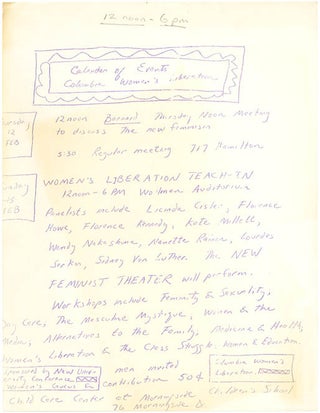 12 noon - 6 pm
Calendar of Events
Columbia Women's Liberation
Thursday
12
FEB
12 noon Barnard Thursday Noon Meeting
to discuss the new feminism
5:30 Regular meeting 717 Hamilton
Sunday
15
FEB
WOMEN'S LIBERATION TEACH-IN
12 noon - 6 PM Wollman Auditorium
Panelists include Lucinda Cisler, Florence
Howe, Florence Kennedy, Kate Millett,
Wendy Nakashima, Nanette Rainone, Lourdes
Sidney Van Luther. The NEW
FEMINIST THEATER will perform.
Workshops include Feminity & Sexuality,
Day Care, The Masculine Mystique, Women & the
Media, Alternatives to the Family, Medicine & Health,
Women's Liberation & the Class Struggle, Women & Education.
Sponsored by New Univ-
ersity Conference
Women's Caucus
men invited
Contribution 50¢
Columbia Women's
Liberation
Child Care Center at Morningside Children's School
76 Morningside Dr